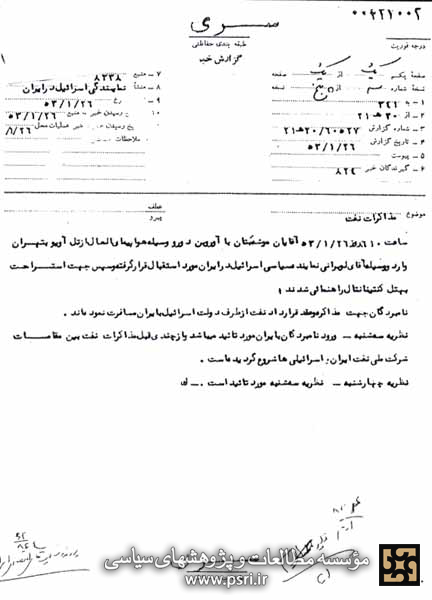 ۰۰۴۲۱۰۰۲
سری
طبقه بندی حفاظتی
گزارش خبر
درجه فوریت
صفحهٔ یکم از یک صفحه
نسخهٔ شماره از پنج نسخه
۱ – به ۳۴۱
۲ – از ۲۰ هـ ۲۱
۳ – شماره گزارش ۲۰/۶۰۵۲۷ هـ ۲۱
۴ – تاریخ گزارش ۵۳/۱/۲۶
۵ – پیوست
۶ – گیرندگان خبر ۸۲۴
۷ – منبع ۸۲۳۸
۸ – منشأ نمایندگی اسرائیل در ایران
۹ –
۱۰ رسیدن خبر به منبع ۵۳/۱/۲۶
رسیدن خبر به عملیات محل
ملاحظات
موضوع مذاکرات نفت
عطف
پیرو
ساعت ۱۰ روز ۵۳/۱/۲۶ آقایان و وسیله هواپیمای العال از تل آویو بتهران
وارد و وسیله آقای لوبرانی نماینده سیاسی اسرائیل در ایران مورد استقبال قرار گرفته و سپس جهت استراحت
بهتل کنتیننتال راهنمائی شدند.
نامبردگان جهت مذاکره و عقد قرارداد نفت از طرف دولت اسرائیل بایران مسافرت نموده اند.
نظریه سه شنبه – ورود نامبردگان بایران مورد تائید میباشد و از چندی قبل مذاکرات نفت بین مقامات
شرکت ملی نفت ایران و اسرائیلی ها شروع گردیده است.
نظریه چهارشنبه – نظریه سه شنبه مورد تائید است.
مؤسسه مطالعات و پژوهشهای سیاسی
www.psri.ir